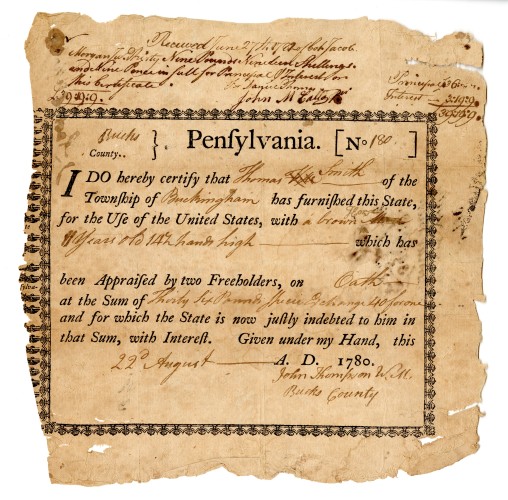 Received June 27th 178 of Col Jacob
Morgan Jr Thirty Nine Pounds Nineteen Shillings
and Nine Pence in full for Principal & Interest for
this Certificate
John M
£39.19.9.
Principal £36
Interest 3.19.9
39.19.9
Bucks
County.. }. Penſylvania. [No 180 ]
I DO hereby certify that Thomas Smith of the
Townſhip of Buckingham has furniſhed this State,
for the Uſe of the United States, with a brown Horse
11 Years old 14½ hands high which has
been Appraiſed by two Freeholders, on Oath
at the Sum of Thirty Six Pounds, Specie Exchange 40 for one
and for which the State is now juſtly indebted to him in
that Sum, with Intereſt. Given under my Hand, this
22d August A. D. 1780.
John Thompson W. M.
Bucks County